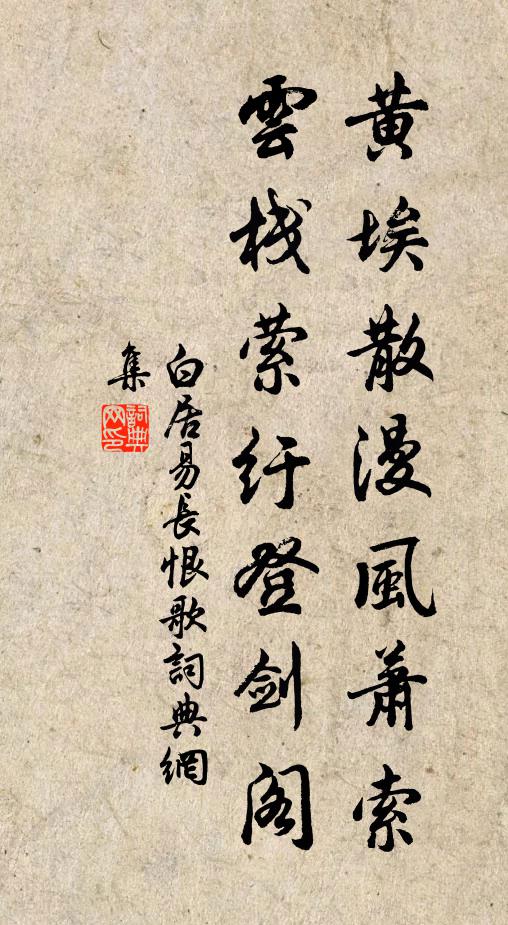 黄埃散漫風蕭索
雲棧縈紆登劍閣
白居易長恨歌詞典網
集
詞典
网印